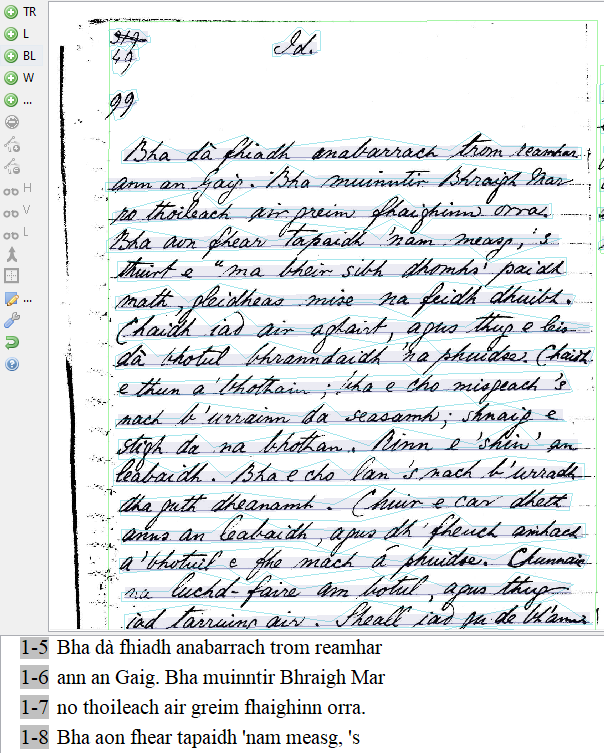 TR
L
BL
W
...
H
V
L
...
319
45
Id.
99
Bha dà fhiadh anabarrach trom reamhar
ann an Gaig. Bha muinntir Bhraigh Mar
no thoileach air greim fhaighinn orra.
Bha aon fhear tapaidh 'nam measg, 's
thuirt e "ma bheir sibh dhomhs' paidh
math, gleidheas mise na feidh dhuibh.
Chaidh iad air aghairt, agus thug e leis
dà bhotul bhranndaidh 'na phuidse. Chaidh
e thun a' bhothain; bha e cho misgeach 's
nach b'urrainn da seasamh; shnaig e
stigh da na bhothan. Rinn e 'shin' an
leabaidh. Bha e cho lan 's nach b'urradh
dha guth dheanamh. Chuir e car dheth
anns an leabaidh, agus dh' fheuch amhach
a' bhotuil e fhe mach á phuidse. Chunnaic
na luchd-faire am botul, agus thug
iad tarruing air. Sheall iad gu de bh'anns
1-5 Bha dà fhiadh anabarrach trom reamhar
1-6 ann an Gaig. Bha muinntir Bhraigh Mar
1-7 no thoileach air greim fhaighinn orra.
1-8 Bha aon fhear tapaidh 'nam measg, 's